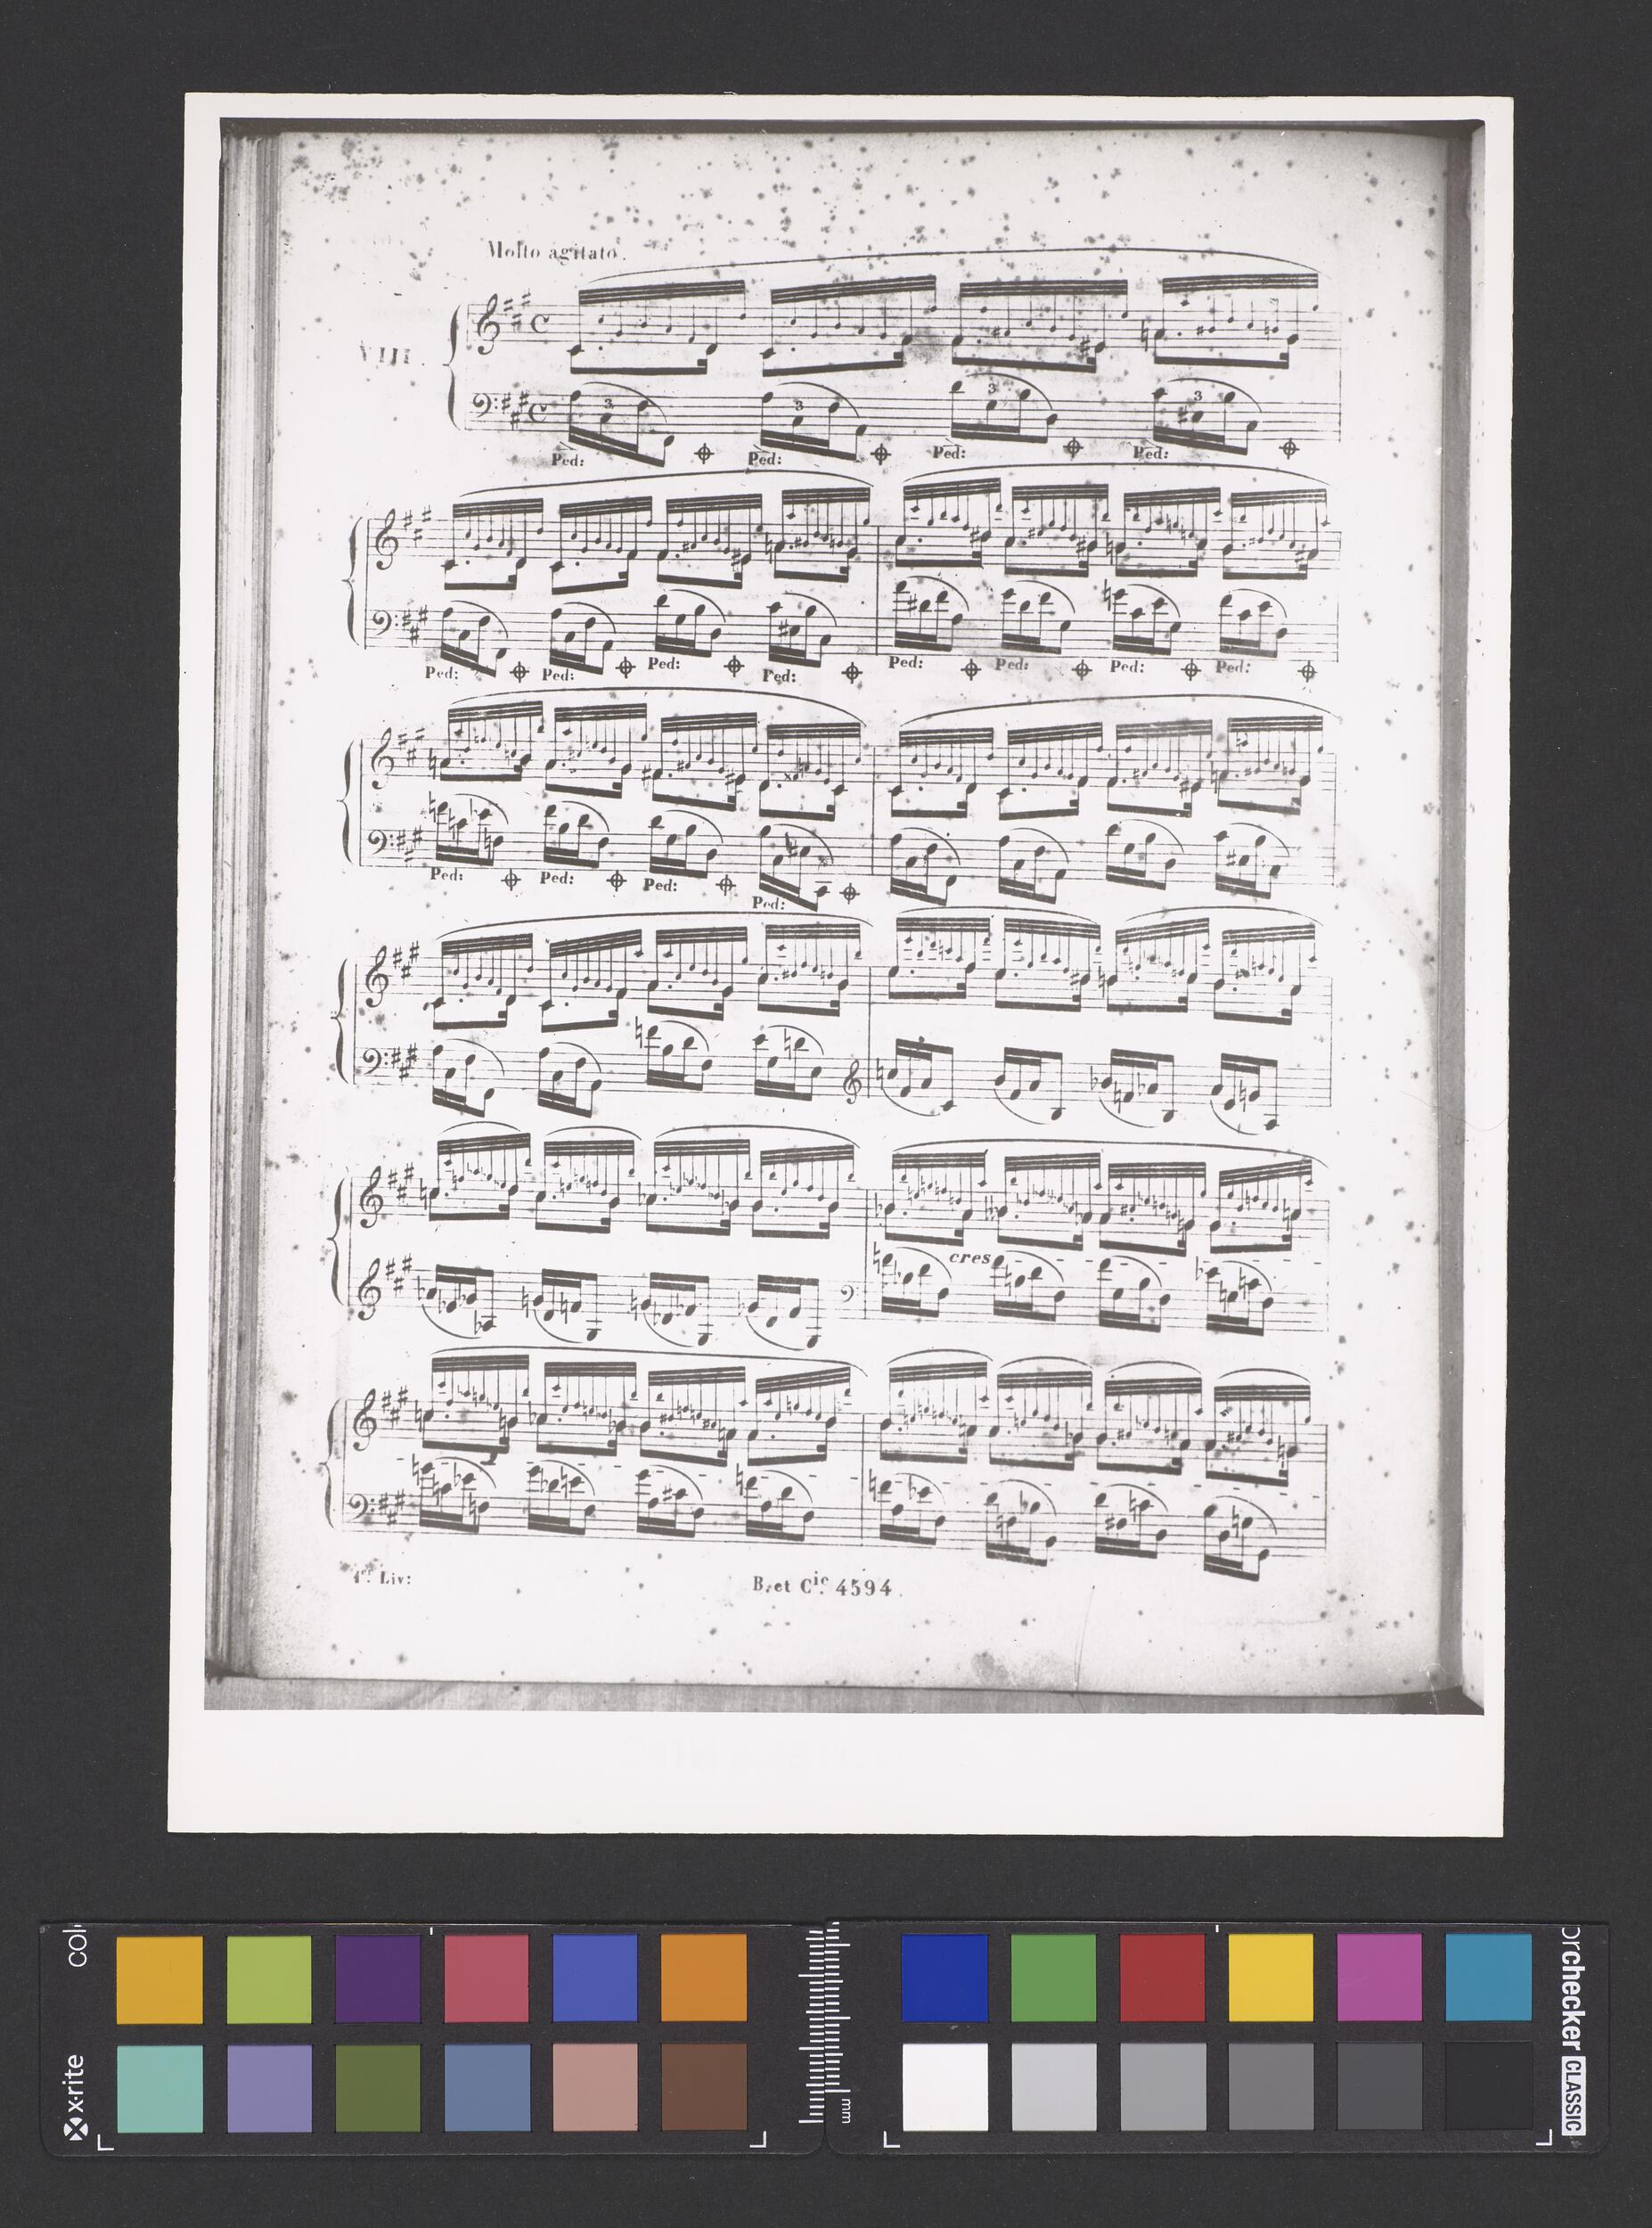 Molto agitato.
VIII.
3 3 3 3
Ped: Ped: Ped: Ped:
Ped: Ped: Ped: Ped: Ped: Ped: Ped: Ped:
Ped: Ped: Ped: Ped:
cres
Liv:
B. et Cie. 4594.
x-rite
col
mm
orchecker CLASSIC